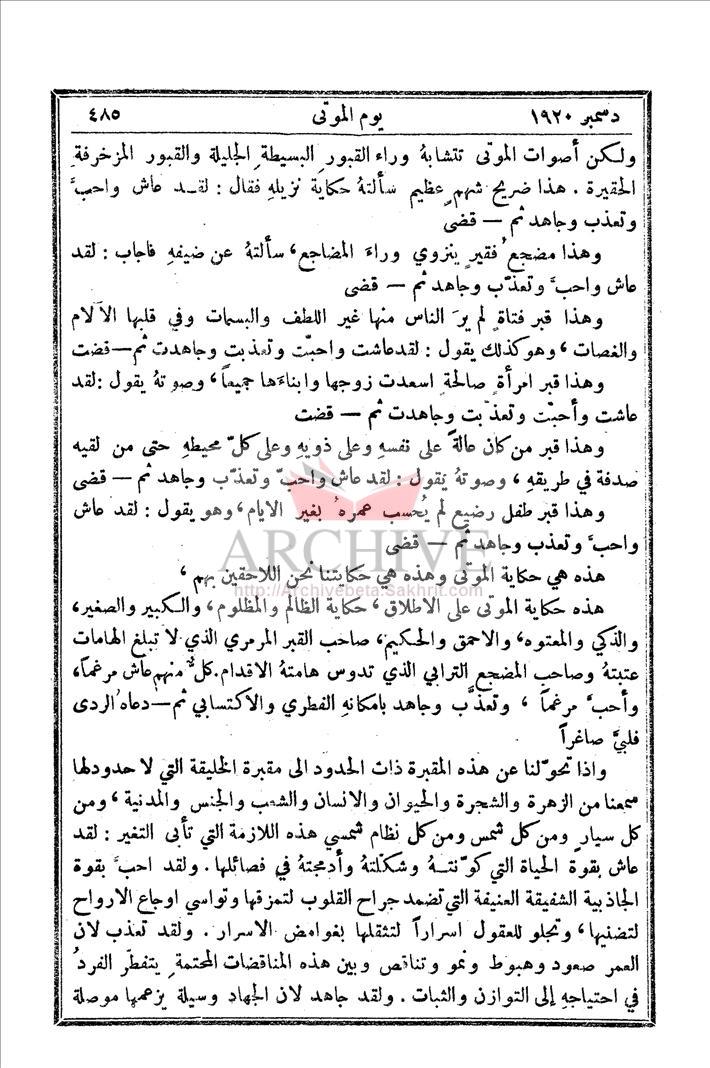 دسمبر ١٩٢٠ يوم الموتى ٤٨٥
ولكن أصوات الموتى تتشابهُ وراء القبور البسيطةِ الجليلة والقبور المزخرفةِ
الحقيرة . هذا ضريح شهمٍ عظيم سألتهُ حكاية نزيلهِ فقال : لقد عاش واحبَّ
وتعذب وجاهد ثم — قضى
وهذا مضجع ُ فقيرٍ ينزوي وراءَ المضاجع ، سألتهُ عن ضيفهِ فاجاب : لقد
عاش واحبَّ وتعذّب وجاهد ثم — قضى
وهذا قبر فتاةٍ لم يرَ الناس منها غير اللطف والبسمات وفي قلبها الآلام
والغصات ، وهو كذلك يقول : لقد عاشت واحبّت وتعذبت وجاهدت ثم — قضت
وهذا قبر امرأةٍ صالحةٍ اسعدت زوجها وابناءَها جميعاً ، وصوتهُ يقول : لقد
عاشت وأحبّت وتعذّبت وجاهدت ثم — قضت
وهذا قبر من كان عالةً على نفسهِ وعلى ذويهِ وعلى كلّ محيطهِ حتى من لقيه
صدفة في طريقهِ ، وصوتهُ يقول : لقد عاش واحبّ وتعذّب وجاهد ثم — قضى
وهذا قبر طفل رضيع لم يُحسب عمرهُ بغير الايام ، وهو يقول : لقد عاش
واحبَّ وتعذب وجاهد ثم — قضى
ARCHIVE
هذه هي حكاية الموتى وهذه هي حكايتنا نحن اللاحقين بهم ،
http://Archivebeta.Sakhrit.com
هذه حكاية الموتى على الاطلاق ، حكاية الظالم والمظلوم ، والكبير والصغير،
والذكي والمعتوه ، والاحمق والحكيم ، صاحب القبر المرمري الذي لا تبلغ الهامات
عتبتهُ وصاحب المضجع الترابي الذي تدوس هامتهُ الاقدام. كلٌّ منهم عاش مرغماً ،
وأحبَّ مرغماً ، وتعذَّب وجاهد بامكانهِ الفطري والاكتسابي ثم — دعاهُ الردى
فلبىَّ صاغراً
واذا تحوّلنا عن هذه المقبرة ذات الحدود الى مقبرة الخليقة التي لا حدود لها
سمعنا من الزهرة والشجرة والحيوان والانسان والشعب والجنس والمدنية ، ومن
كل سيارٍ ومن كل شمس ومن كل نظام شمسي هذه اللازمة التي تأبى التغير : لقد
عاش بقوة الحياة التي كوّنتهُ وشكلتهُ وأدمجتهُ في فصائلها . ولقد احبَّ بقوة
الجاذبية الشفيقة العنيفة التي تضمد جراح القلوب لتمزقها وتواسي اوجاع الارواح
لتضنيها ، وتجلو للعقول اسراراً لتثقلها بغوامض الاسرار . ولقد تعذب لان
العمر صعود وهبوط ونمو وتناقص وبين هذه المناقضات المحتمةِ يتفطّر الفردُ
في احتياجهِ إلى التوازن والثبات . ولقد جاهد لان الجهاد وسيلة يزعمها موصلة